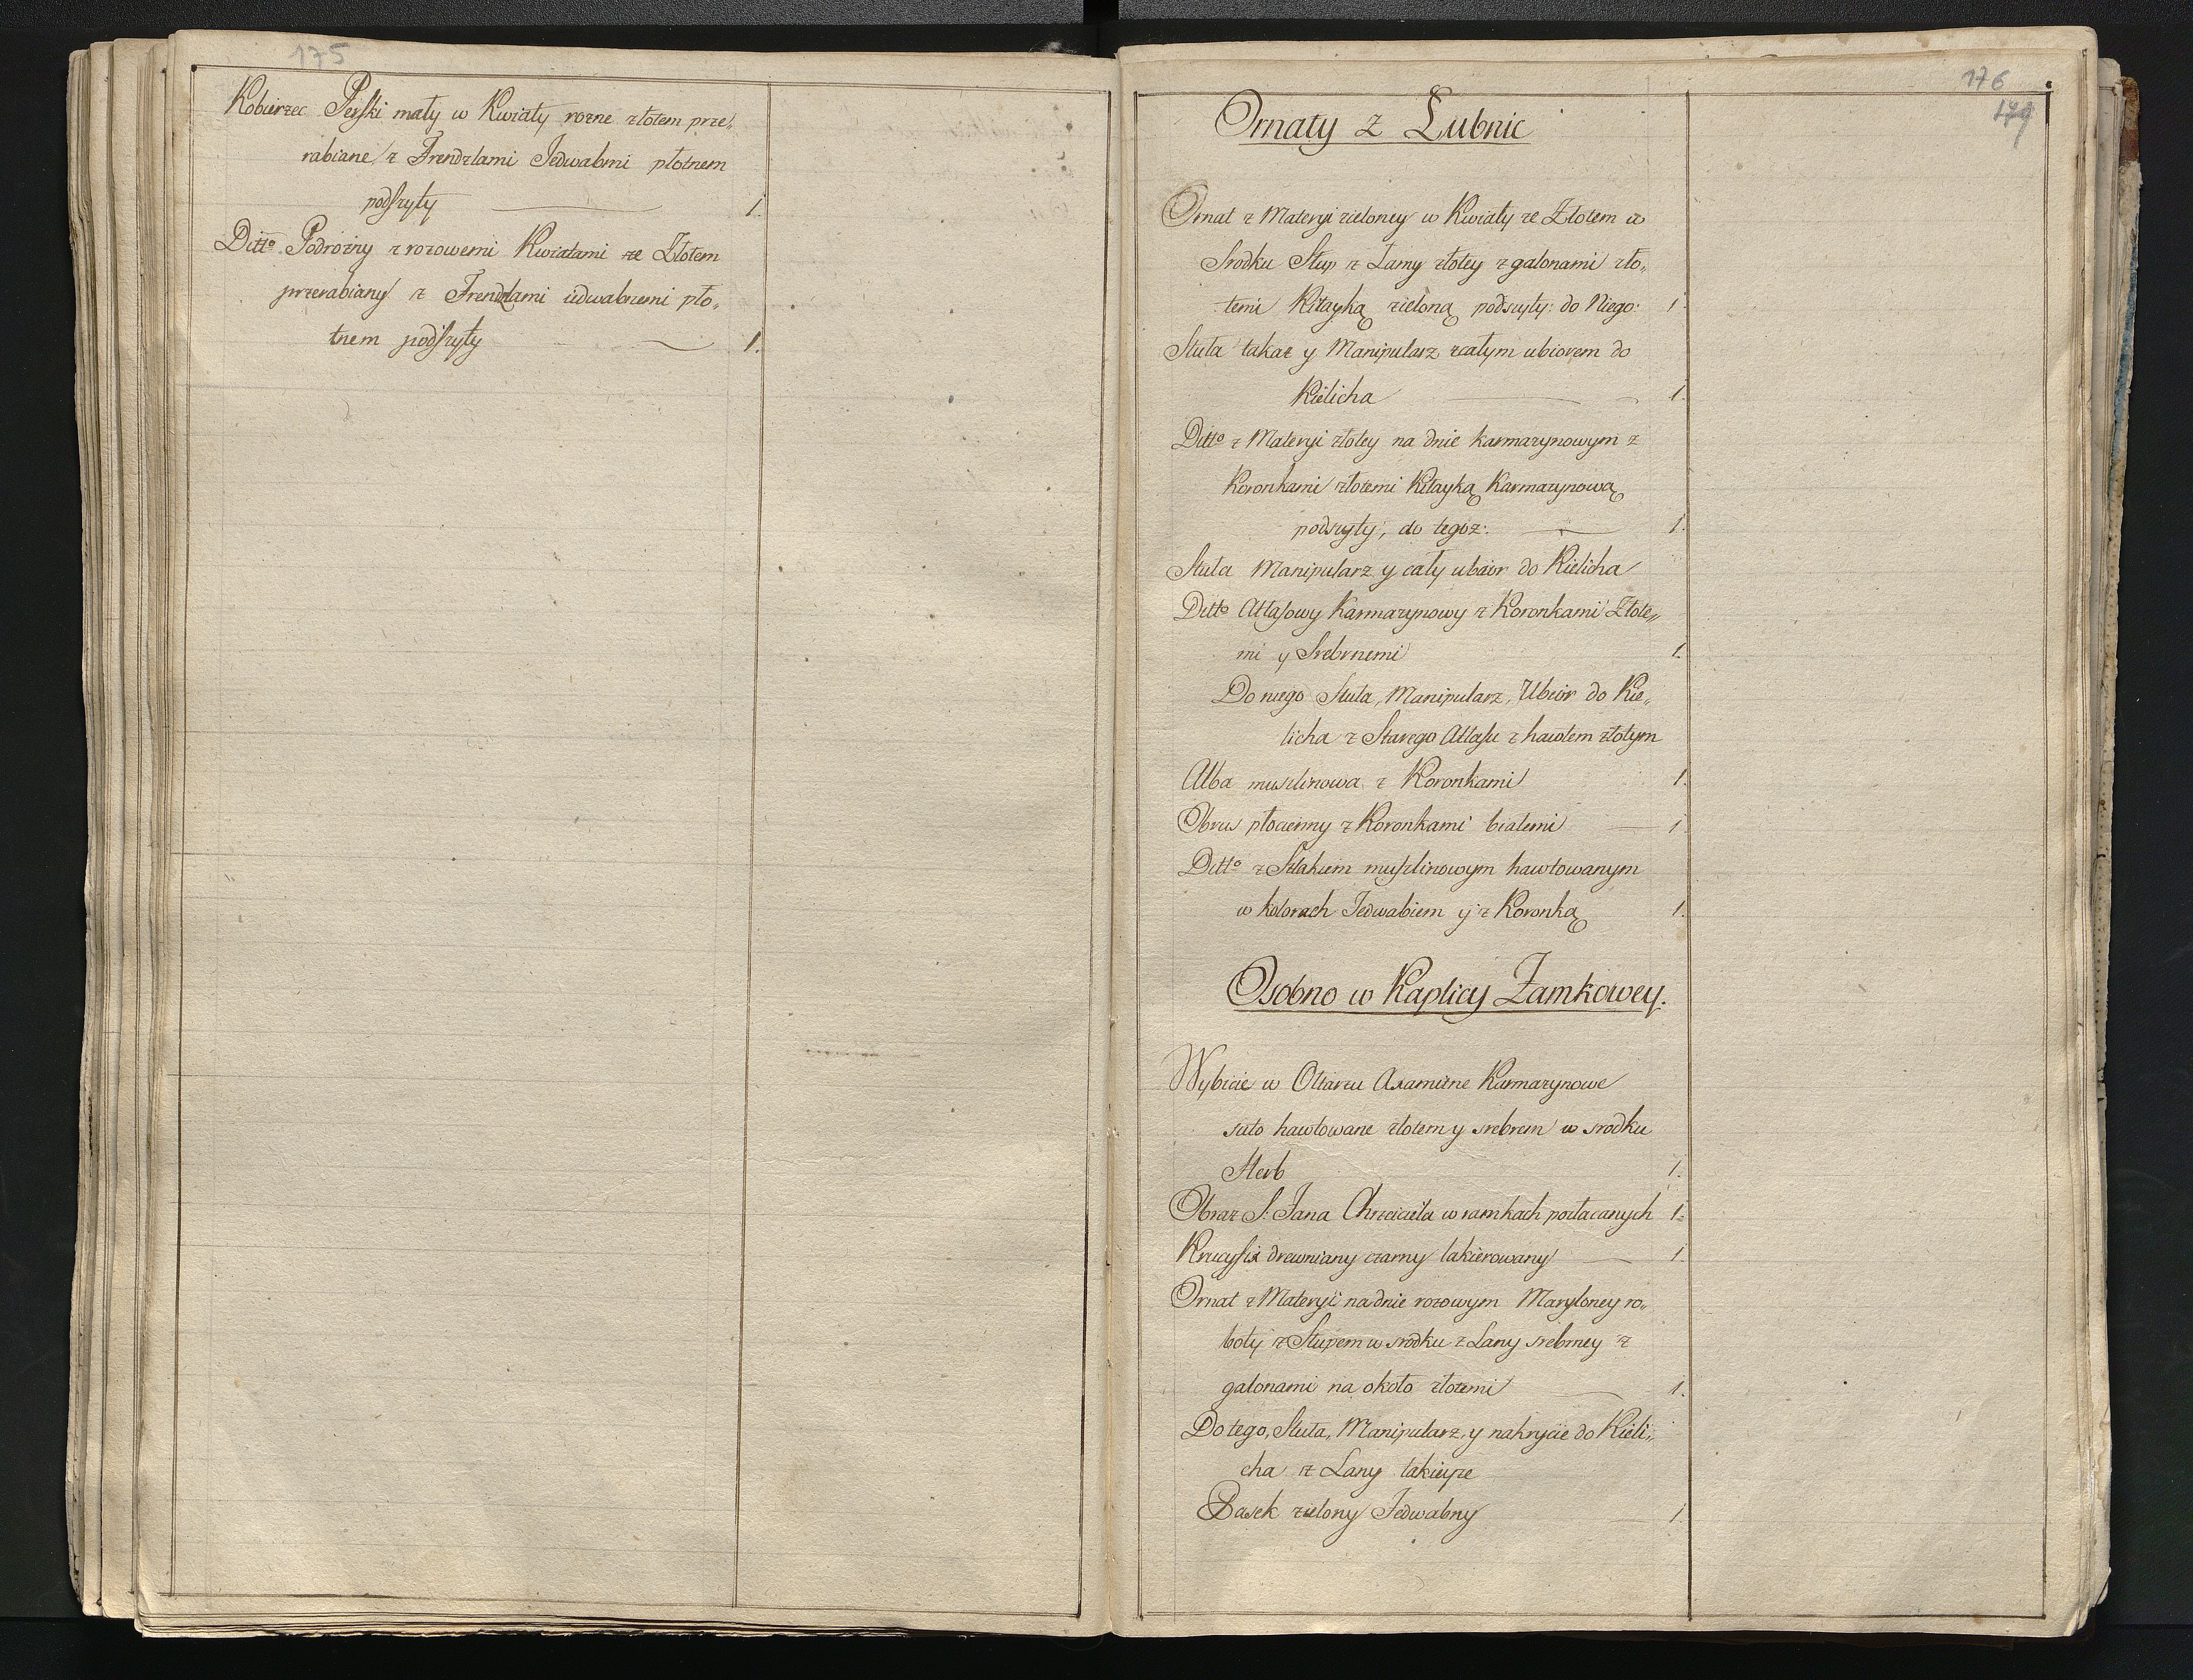 175
Kobierzec Perski mały w Kwiaty rozne złotem prze„
rabiane z Frendzlami Jedwabmi płotnem
podszyty 1.
Ditto Podrozny z rozowemi Kwiatami ze Złotem
przerabiany z Frendzlami iedwabnemi pło„
tnem podszyty 1.
176
179
Ornaty z Łubnic
Ornat z Materyi zieloney w Kwiaty ze Złotem w
Srodku Słup z Lamy złotey z galonami zło„
temi Kitayką zieloną podszyty: do Niego: 1
Stuła takaz y Manipularz z całym ubiorem do
Kielicha 1.
Ditto z Materyi złotey na dnie karmazynowym z
Koronkami złotemi Kitayką Karmazynową
podszyty, do tegoz: 1.
Stuła Manipularz y cały ubior do Kielicha
Ditto Atłasowy Karmazynowy z Koronkami Złote„
mi y Srebrnemi 1.
Do niego Stuła, Manipularz, Ubior do Kie„
licha z Starego Atłasu z hawtem złotym
Alba muszlinowa z Koronkami 1.
Obrus płocienny z Koronkami białemi 1
Ditto z Szlakiem muszlinowym hawtowanym
w kolorach Jedwabiem y z Koronką 1.
Osobno w Kaplicy Zamkowey.
Wybicie w Ołtarzu Axamitne Karmazynowe
suto hawtowane złotem y srebrem w srodku
Herb 1.
Obraz S: Jana Chrzciciela w ramkach pozłacanych 1.
Krucyfix drewniany czarny lakierowany 1.
Ornat z Materyi na dnie rozowym Maryloney ro„
boty z Słupem w srodku z Lany srebrney z
galonami na około złotemi 1.
Do tego, Stuła, Manipularz, y nakrycie do Kieli„
cha z Lany takieyze
Pasek zielony Jedwabny 1